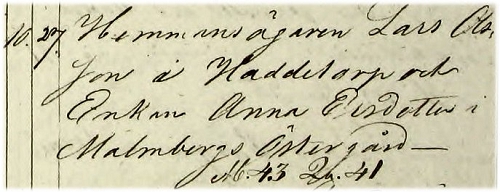 10. 27. Hemmansägaren Lars Ols
son i Haddetorp och
Enkan Anna Persdotter i
Malmbergs Östergård —
M. 43 Qv. 41